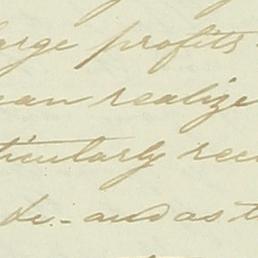 large profits
can realize
ticularly rec
de - and as t